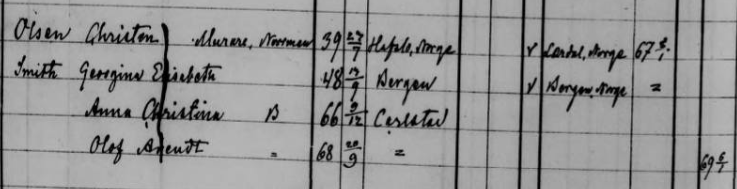 Olsen Christen Murare, Norrman 39 27/7 Hafslo, Norge v Lardal, Norge 67 5/1
Smith Georgina Elisabeth 48 17/9 Bergen v Bergen, Norge =
Anna Christina B 66 9/12 Carlstad
Olof Arendt = 68 20/9 = 69 6/1